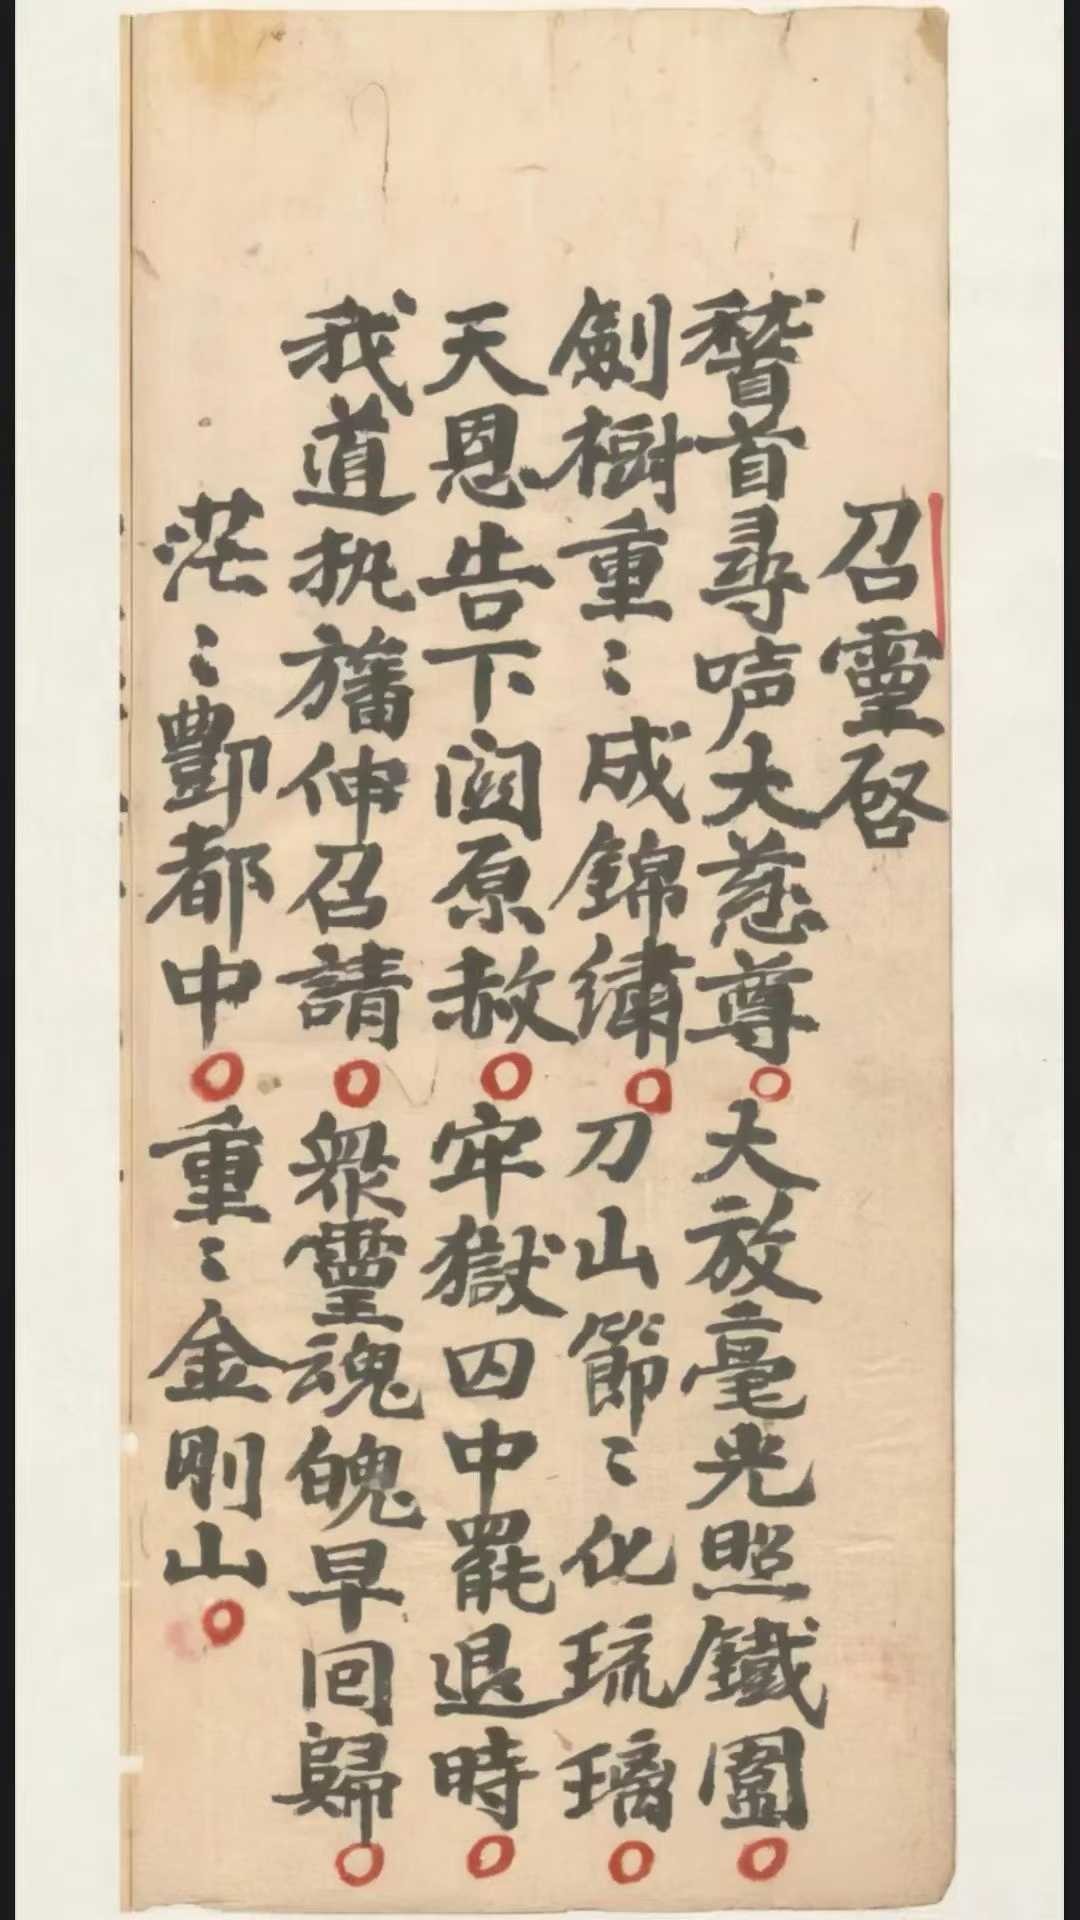 召靈啓
稽首尋声大慈尊○大放毫光照鐵圍○
劍樹重〻成錦繡○刀山節〻化琉璃○
天恩告下闷原赦○牢獄囚中罷退時○
我道执旛伸召請○衆靈魂魄早回歸○
茫〻酆都中○重〻金剛山○